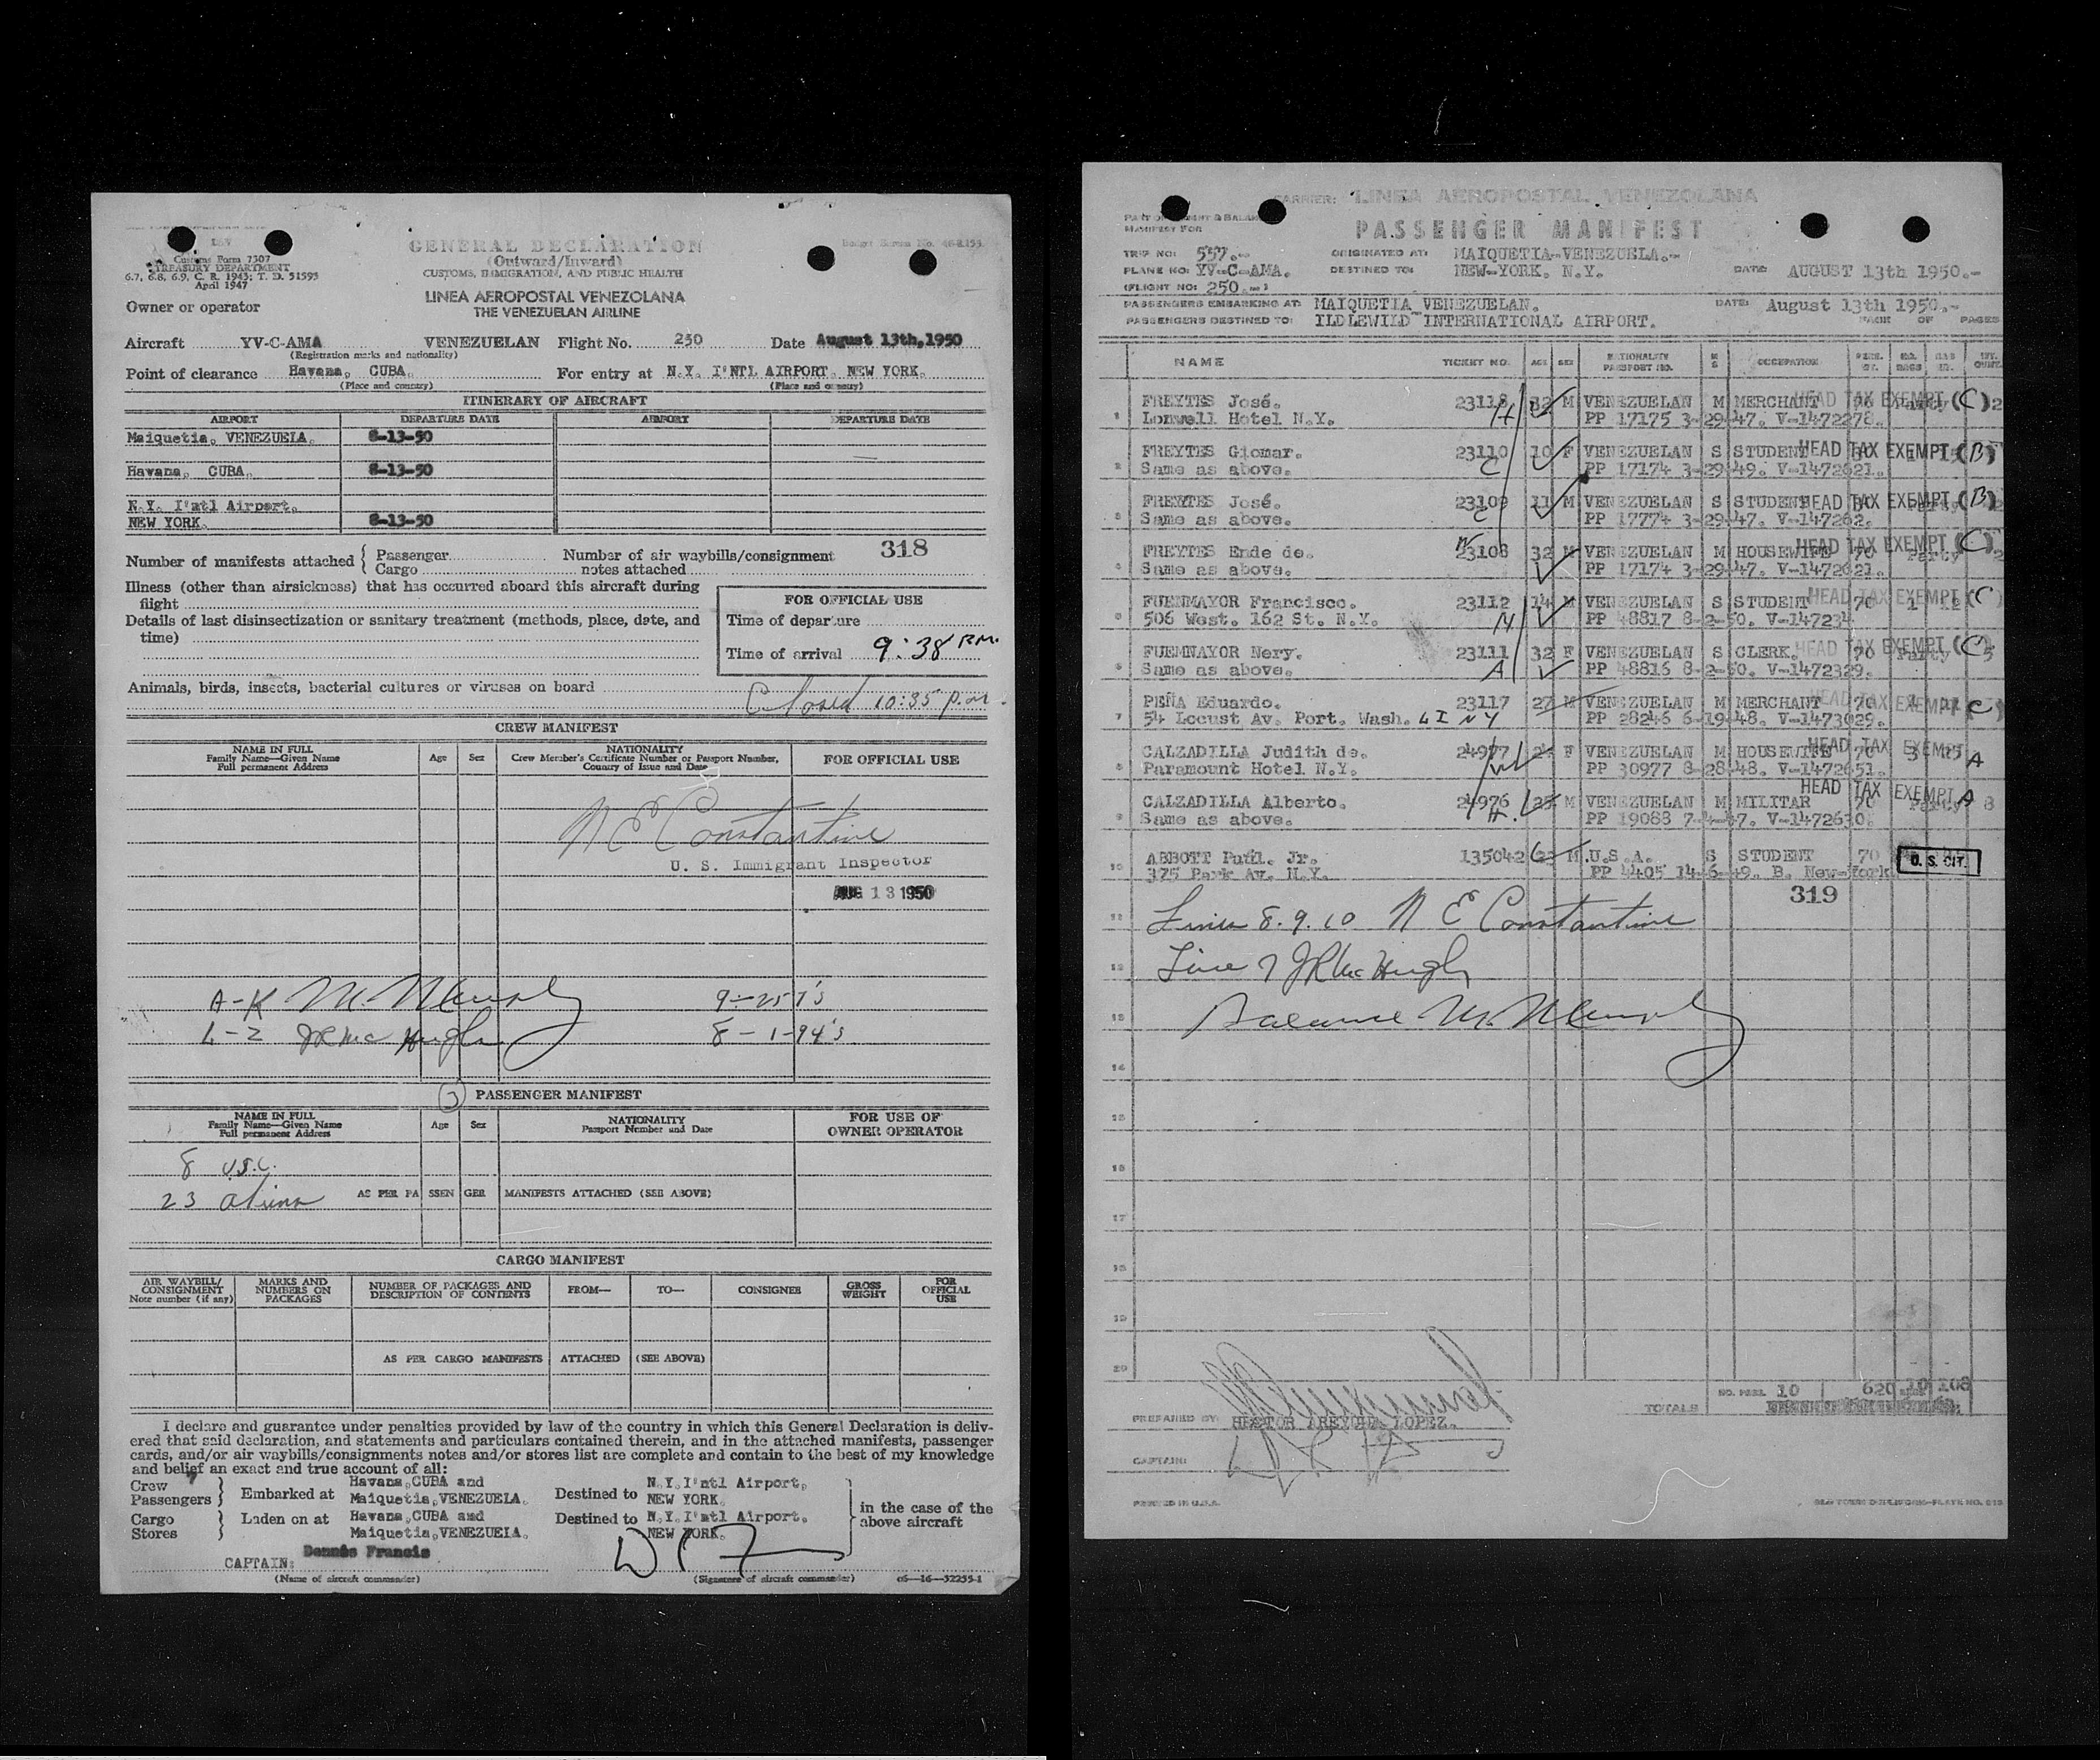 LAV
Customs Form 7507
TREASURY DEPARTMENT
6.7, 6.8, 6.9, C. R. 1943; T. D. 51595
April 1947
GENERAL DECLARATION
(Outward/Inward)
CUSTOMS, IMMIGRATION, AND PUBLIC HEALTH
Owner or operator
LINEA AEROPOSTAL VENEZOLANA
THE VENEZUELAN AIRLINE
Aircraft YV-C-AMA VENEZUELAN Flight No. 250 Date August 13th, 1950
(Registration marks and nationality)
Point of clearance Havana, CUBA. For entry at N.Y. I'NTL AIRPORT. NEW YORK.
(Place and country) (Place and country)
ITINERARY OF AIRCRAFT
AIRPORT DEPARTURE DATE AIRPORT DEPARTURE DATE
Maiquetia, VENEZUELA. 8-13-50
Havana, CUBA. 8-13-50
N.Y. I'ntl Airport.
NEW YORK. 8-13-50
Number of manifests attached Passenger Number of air waybills/consignment 318
Cargo notes attached
Illness (other than airsickness) that has occurred aboard this aircraft during
flight
Details of last disinsectization or sanitary treatment (methods, place, date, and
time)
FOR OFFICIAL USE
Time of departure
Time of arrival 9:38 P.M.
Animals, birds, insects, bacterial cultures or viruses on board
Closed 10:35 p.m.
CREW MANIFEST
NAME IN FULL
Family Name—Given Name
Full permanent Address
Age Sex
NATIONALITY
Crew Member's Certificate Number or Passport Number,
Country of Issue and Date
FOR OFFICIAL USE
N E Constantine
U. S. Immigrant Inspector
AUG 13 1950
A-K M.
L-Z JR McHugh
PASSENGER MANIFEST
NAME IN FULL
Family Name—Given Name
Full permanent Address
Age Sex
NATIONALITY
Passport Number and Date
FOR USE OF
OWNER OPERATOR
8 U.S.C.
23 aliens AS PER PASSENGER MANIFESTS ATTACHED (SEE ABOVE)
CARGO MANIFEST
AIR WAYBILL/
CONSIGNMENT
Note number (if any)
MARKS AND
NUMBERS ON
PACKAGES
NUMBER OF PACKAGES AND
DESCRIPTION OF CONTENTS
FROM— TO— CONSIGNEE
GROSS
WEIGHT
FOR
OFFICIAL
USE
AS PER CARGO MANIFESTS ATTACHED (SEE ABOVE)
I declare and guarantee under penalties provided by law of the country in which this General Declaration is deliv-
ered that said declaration, and statements and particulars contained therein, and in the attached manifests, passenger
cards, and/or air waybills/consignments notes and/or stores list are complete and contain to the best of my knowledge
and belief an exact and true account of all:
Crew
Passengers Embarked at Havana, CUBA and Maiquetia, VENEZUELA. Destined to N.Y. I'ntl Airport, NEW YORK.
Cargo
Stores Laden on at Havana, CUBA and Maiquetia, VENEZUELA. Destined to N.Y. I'ntl Airport. NEW YORK.
in the case of the
above aircraft
CAPTAIN: Dennis Francis
(Name of aircraft commander) (Signature of aircraft commander) 16—52255-1
CARRIER: LINEA AEROPOSTAL VENEZOLANA
MANIFEST FOR
PASSENGER MANIFEST
TRIP NO: 557.- ORIGINATED AT: MAIQUETIA-VENEZUELA.-
PLANE NO: YV-C-AMA. DESTINED TO: NEW-YORK. N.Y. DATE: AUGUST 13th 1950.-
(FLIGHT NO: 250.)
PASSENGERS EMBARKING AT: MAIQUETIA VENEZUELAN. DATE: August 13th 1950.-
PASSENGERS DESTINED TO: ILDLEWILD INTERNATIONAL AIRPORT. PAGE OF PAGES
NAME TICKET NO. AGE SEX NATIONALITY PASSPORT NO. M S OCCUPATION
1 FREYTES José. 23118 32 M VENEZUELAN M MERCHANT HEAD TAX EXEMPT (C) 2
Lonwell Hotel N.Y. H PP 17175 3-29-47. V-1472278.
2 FREYTES Giomar. 23110 10 F VENEZUELAN S STUDENT HEAD TAX EXEMPT (B)
Same as above. C PP 17174 3-29-49. V-1472621.
3 FREYTES José. 23109 11 M VENEZUELAN S STUDENT HEAD TAX EXEMPT (B)
Same as above. C PP 17774 3-29-47. V-147262.
4 FREYTES Ende de. 23108 32 VENEZUELAN M HOUSEWIFE 70 HEAD TAX EXEMPT (C)
Same as above. PP 17174 3-29-47. V-1472621.
5 FUENMAYOR Francisco. 23112 14 M VENEZUELAN S STUDENT 70 HEAD TAX EXEMPT (C)
506 West. 162 St. N.Y. N PP 48817 8-2-50. V-147234
6 FUEMNAYOR Nery. 23111 32 F VENEZUELAN S CLERK. 70 HEAD TAX EXEMPT (C)
Same as above. A PP 48816 8-2-50. V-1472329.
7 PEÑA Eduardo. 23117 27 M VENEZUELAN M MERCHANT 70 HEAD TAX EXEMPT (C)
54 Locust Av. Port. Wash. L I N Y PP 28246 6-19-48. V-1473029.
8 CALZADILLA Judith de. 24977 F VENEZUELAN M HOUSEWIFE 70 HEAD TAX EXEMPT A
Paramount Hotel N.Y. W PP 30977 8-28-48. V-1472651.
9 CALZADILLA Alberto. 24976 25 M VENEZUELAN M MILITAR 70 HEAD TAX EXEMPT A
Same as above. H. PP 19088 7-4-47. V-1472630.
10 ABBOTT Paúl. Jr. 135042 23 M U.S.A. S STUDENT 70 U. S. CIT.
375 Park Av. N.Y. PP 4405 14-6-49. B. New-York.
319
11 Lines 8.9.10 N E Constantine
12 Line 7 JR McHugh
13 Balance M.
14
15
16
17
18
19
20
NO. PASS. 10 620 10 108
TOTALS
PREPARED BY: HECTOR AREYUNA LOPEZ.
CAPTAIN:
PRINTED IN U.S.A.